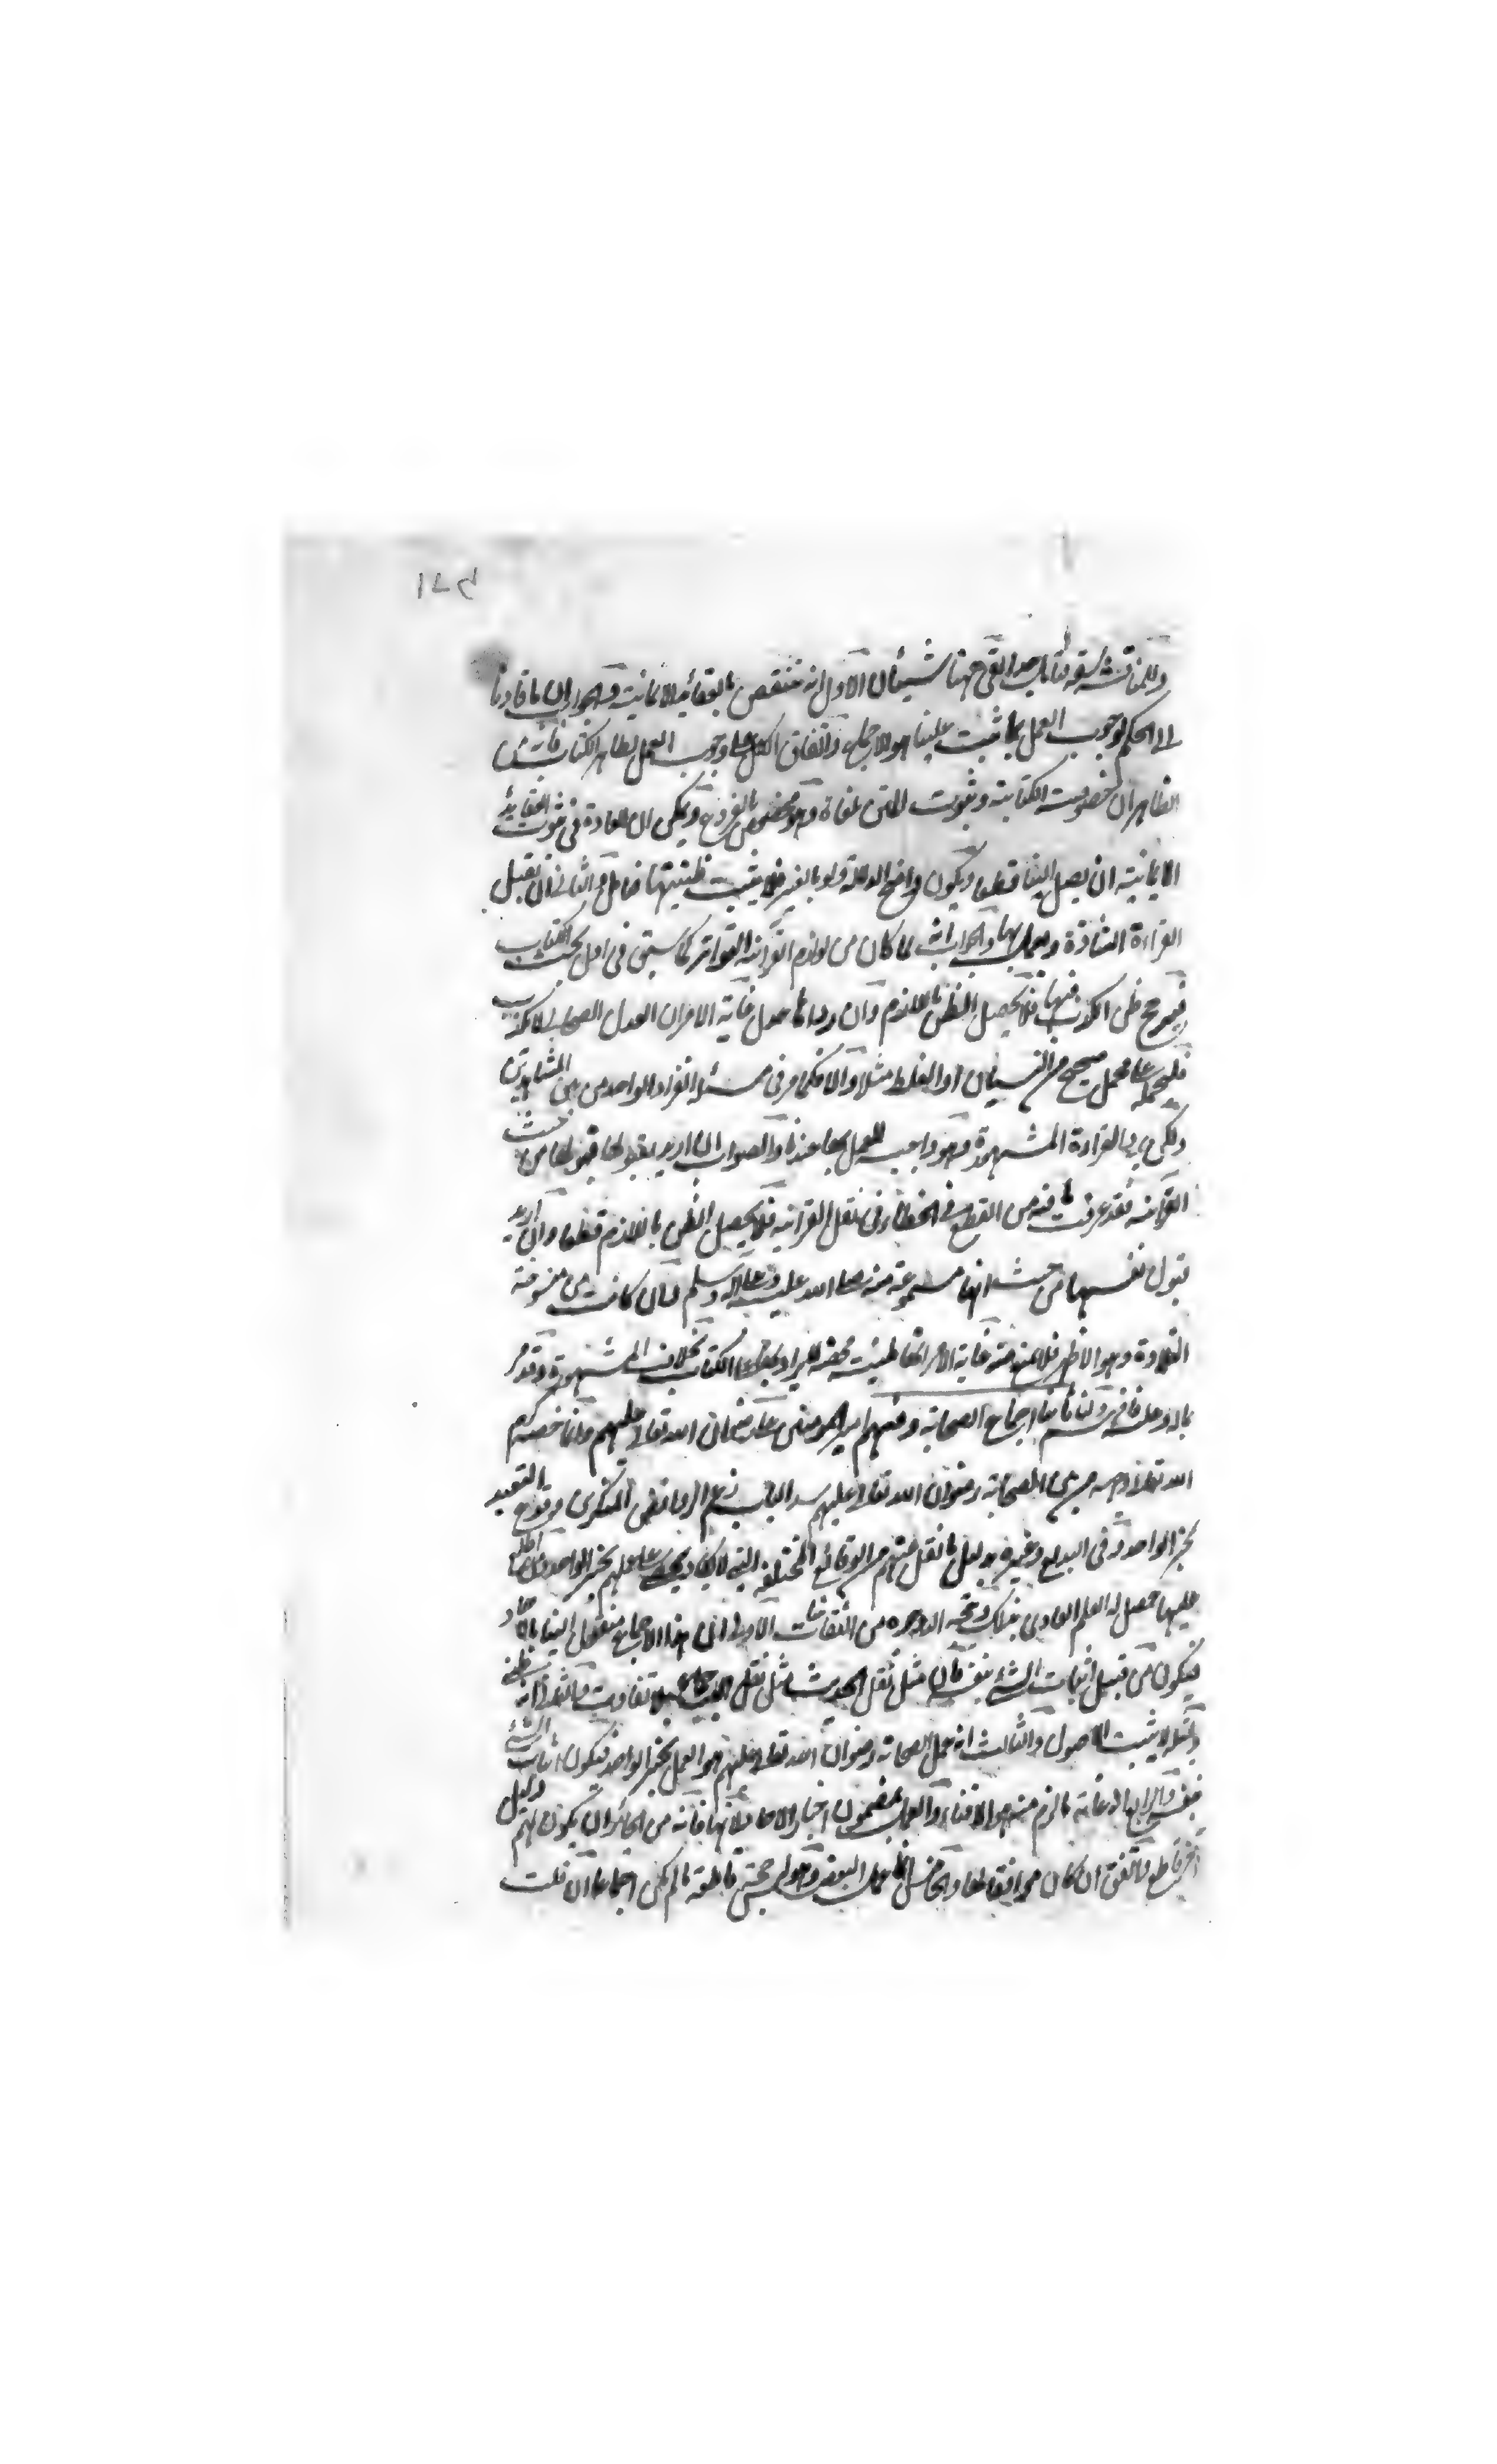 ١٧٣
شيئان الاول انه منتقض بالعقائد الايمانية والجواب ان ما قادنا
الى الحكم بوجوب العمل بما ثبت علينا هو الاجماع واتفاق الكل على وجوب العمل بظاهر الكتاب فانه من
الظاهر ان خصوصية الكتابية وثبوت المتن ملغاة وهو مخصوص بالفروع ويمكن ان العادة في ثبوت العقائد
الايمانية ان يصل الينا قطعا ويكون واضح الدلالة ولو بالغير فلا يثبت ظنيتها فتامل والثاني ان تقبل
القراءة الشاذة ويعمل بها والجواب انه لما كان من لوازم القرآنية التواتر كما سبق في اول بحث الكتاب
فيترجح ظن الكذب فيها فلا يحصل الظن بالملزوم وان رواها عدول غاية الامر ان العدل الصحابي لا يكذب
فليحمله على محمل صحيح من النسيان او الغلط مثلا والا فكما مر في مسئلة انفراد الواحد من بين المشاهدين
القراءة المشهورة وهو واجب العمل بها عندنا والصواب ان اريد بقبولها قبولها من حيث
القرآنية فقد عرفت ما فيه من القطع في الخطاء في نقل القرآنية فلا يحصل الظن باللازم قطعا وان اريد
قبول نفسها من حيث انها مسموعة منه صلى الله عليه وعلى آله وسلم وان كانت من منسوخة
التلاوة وهو الاظهر فلا منع منه غاية الامر انها ظنية محضة بخلاف المشهورة وقد مر
ما له وعليه فافهم ولنا ثانيا اجماع الصحابة وفيهم امير المؤمنين علي رضوان الله تعالى عليهم وانما خصه كرم
الله تعالى وجهه من بين الصحابة رضوان الله تعالى عليهم سدا لباب زعم الروافض المنكرين وقوع التعبد
بخبر الواحد وفي البديع وغيره بدليل ما نقل عنهم من الوقائع المختلفة التي لا يكاد يحصى على عملهم بخبر الواحد من اطلع
عليها حصل له العلم العادي بذلك وتوجه الوجوه من النقاشات الاول ان هذا الاجماع منقول الينا بالآحاد
فيكون من قبيل اثبات الشيء بنفسه فان مثل نقل الحديث مثل نقل الاجماع بلا تفاوت والثاني انه ظني
ومثله لا يثبت الاصول والثالث انه عمل الصحابة رضوان الله تعالى عليهم هو العمل بخبر الواحد فيكون اثبات الشيء
بنفسه والرابع انه غاية ما لزم منه هو الافتاء والعمل بمضمون اخبار الآحاد لا بها فانه من الجائز ان يكون لهم دليل
آخر قاطع واتفق ان كان موافقا لها والخامس انه عمل البعض وهو ليس حجة قاطعة ما لم يكن اجماعا ان قلت